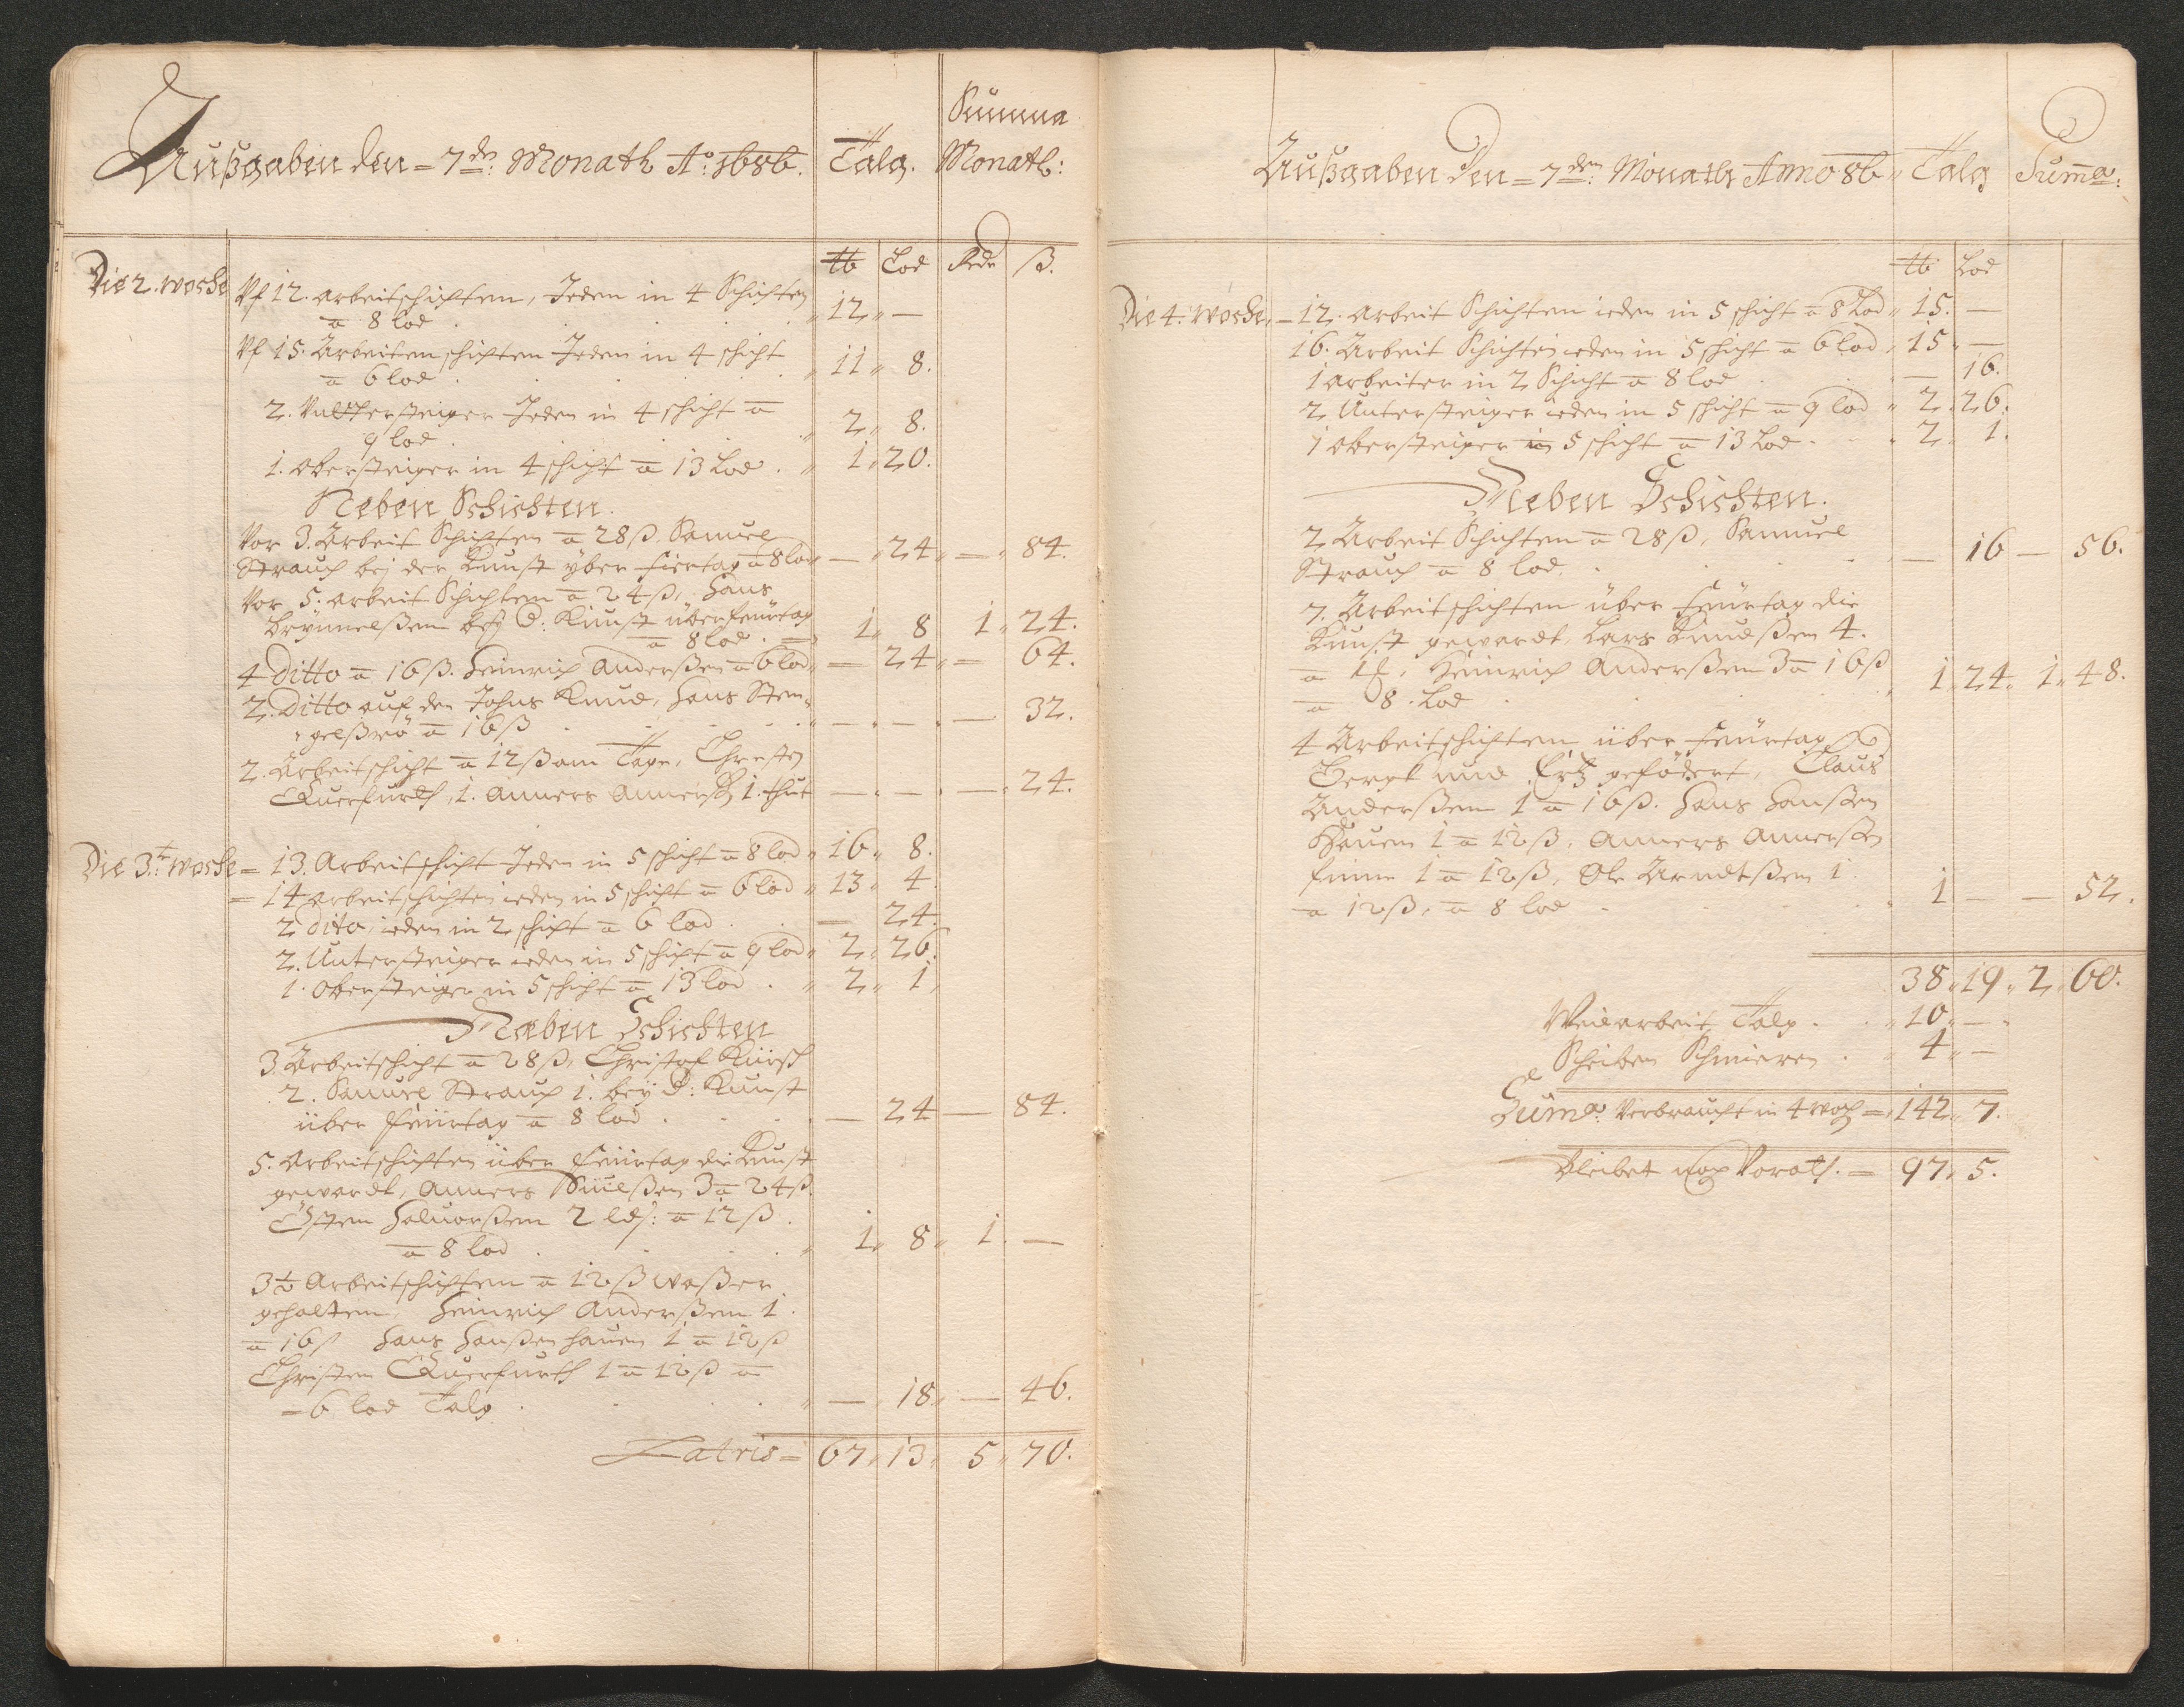 Außgaben den = 7den Monath Ao: 1686.
Talg.
Summa
Monath:
Die 2. woche
lb Lod Rdr ß.
Vf 12. arbeitschichten, Jeden in 4 Schichten
a 8 lod . 12 " —
Vf 15. Arbeitenschichten Jeden in 4 schicht
a 6 lod . 11 " 8.
2. Untersteiger Jeden in 4 schicht a
9 lod . 2 " 8.
1. obersteiger in 4 schicht a 13 Lod . 1 " 20.
Neben Schichten.
Vor 3. Arbeit Schichten a 28 ß. Samuel
Strauch bej der Kunst yber fiertag a 8 lod — " 24 " — " 84.
Vor 5. arbeit Schichten a 24 ß, Hans
Brynnelßen bej d: Kunst über feürtag
a 8 lod . 1 " 8 1 " 24.
4 Ditto a 16 ß. Heinrich Anderßen a 6 lod — 24 " — 64.
2. Ditto auf den Johns Knud, Hans Sten
gelßrö a 16 ß . — " — " — 32.
2. Arbeitschicht a 12 ß am Tage, Christen
Querfurth, 1. Anners Annerß 1. thut — . — . — 24.
Die 3.te woche = 13. Arbeitschicht Jeden in 5 schicht a 8 lod " 16 " 8.
= 14 arbeitschichten ieden in 5 schicht a 6 lod " 13 " 4
2 dito, ieden in 2 schicht a 6 lod . — 24.
2. Untersteiger ieden in 5 schicht a 9 lod " 2 " 26.
1. obersteiger in 5 schicht a 13 lod . " 2 " 1,
Neben Schichten
3. Arbeitschicht a 28 ß, Christof
2. Samuel Strauch 1. bey d: Kunst
über feürtag a 8 lod . — 24 — 84.
5. Arbeitschichten über feürtag die Kunst
gewardt, Anners 3 a 24 ß.
Esten Halvorßen 2 a 12 ß.
a 8 lod . 1 " 8 " 1 . —
3½ Arbeitschichten a 12 ß waßer
gehalten Heinrich Anderßen 1.
a 16 ß Hans Hanßen Hauen 1 a 12 ß
Christen Querfurth 1 a 12 ß a
= 6 lod Talg . — " 18 " — 46.
Latris = 67 " 13 " 5 " 70.
Außgaben Den = 7den: Monath Anno 86 "
Talg
Suma:
lb Lod
Die 4. woche, = 12. arbeit Schichten ieden in 5 schicht a 8 Lod " 15. —
16. Arbeit Schichten ieden in 5 schicht a 6 lod, 15 " —
1 arbeiter in 2 Schicht a 8 lod . — 16.
2 Untersteiger ieden in 5 schicht a 9 lod " 2 " 26.
1 obersteiger in 5 schicht a 13 Lod . 2 " 1.
Neben Schichten.
2 Arbeit Schichten a 28 ß, Samuel
Strauch a 8 lod. — 16 — 56.
7. Arbeitschichten über feürtag die
Kunst gewardt, Lars Knudßen 4.
a Heinrich Anderßen 3 a 16 ß
a 8. Lod . 1 " 24 " 1 " 48.
4 Arbeitschichten über feürtag
Bergk und Ertz gefödert, Claus
Anderßen 1 a 16 ß. Hans Hanßen
Hauen 1 a 12 ß, Anners Annerßen
finne 1 a 12 ß, Ole Arndtßen 1
a 12 ß, a 8 lod . 1 — — 52.
38 " 19 " 2 " 60.
Weilarbeit Talg . " 10 " —
Scheiben Schmieren . " 4 " —
Suma Verbraucht in 4 woch = 142 " 7.
Bleibet noch Vorath. = 97, 5.